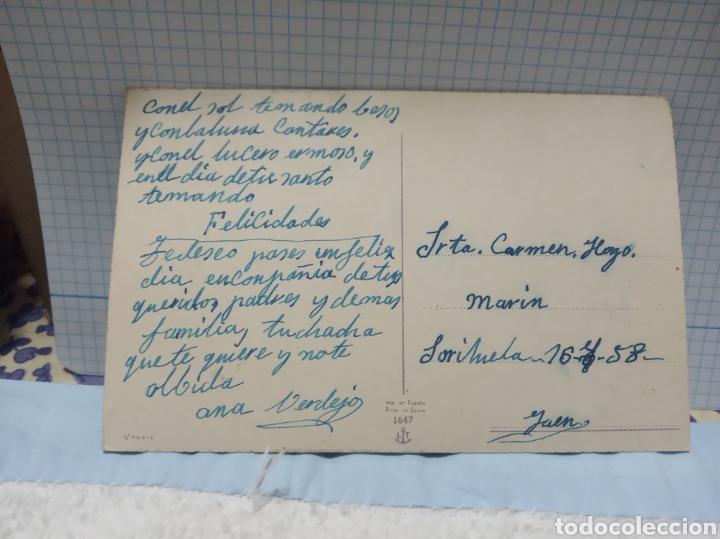 Conel sol temando besos
y Conlaluna Cantares.
y Conel lucero ermoso, y
enel dia detu santo
temando
Felicidades
Tedeseo pases unfeliz
dia, encompañia detus
queridos, padres y demas
familia, tu
quete quiere y note
olbida
ana Verdejo
Srta. Carmen. Hoyo.
Marin
Sorihuela 16- -58-
Jaen
Imp. en España
Print. in Spain
1647
todocoleccion